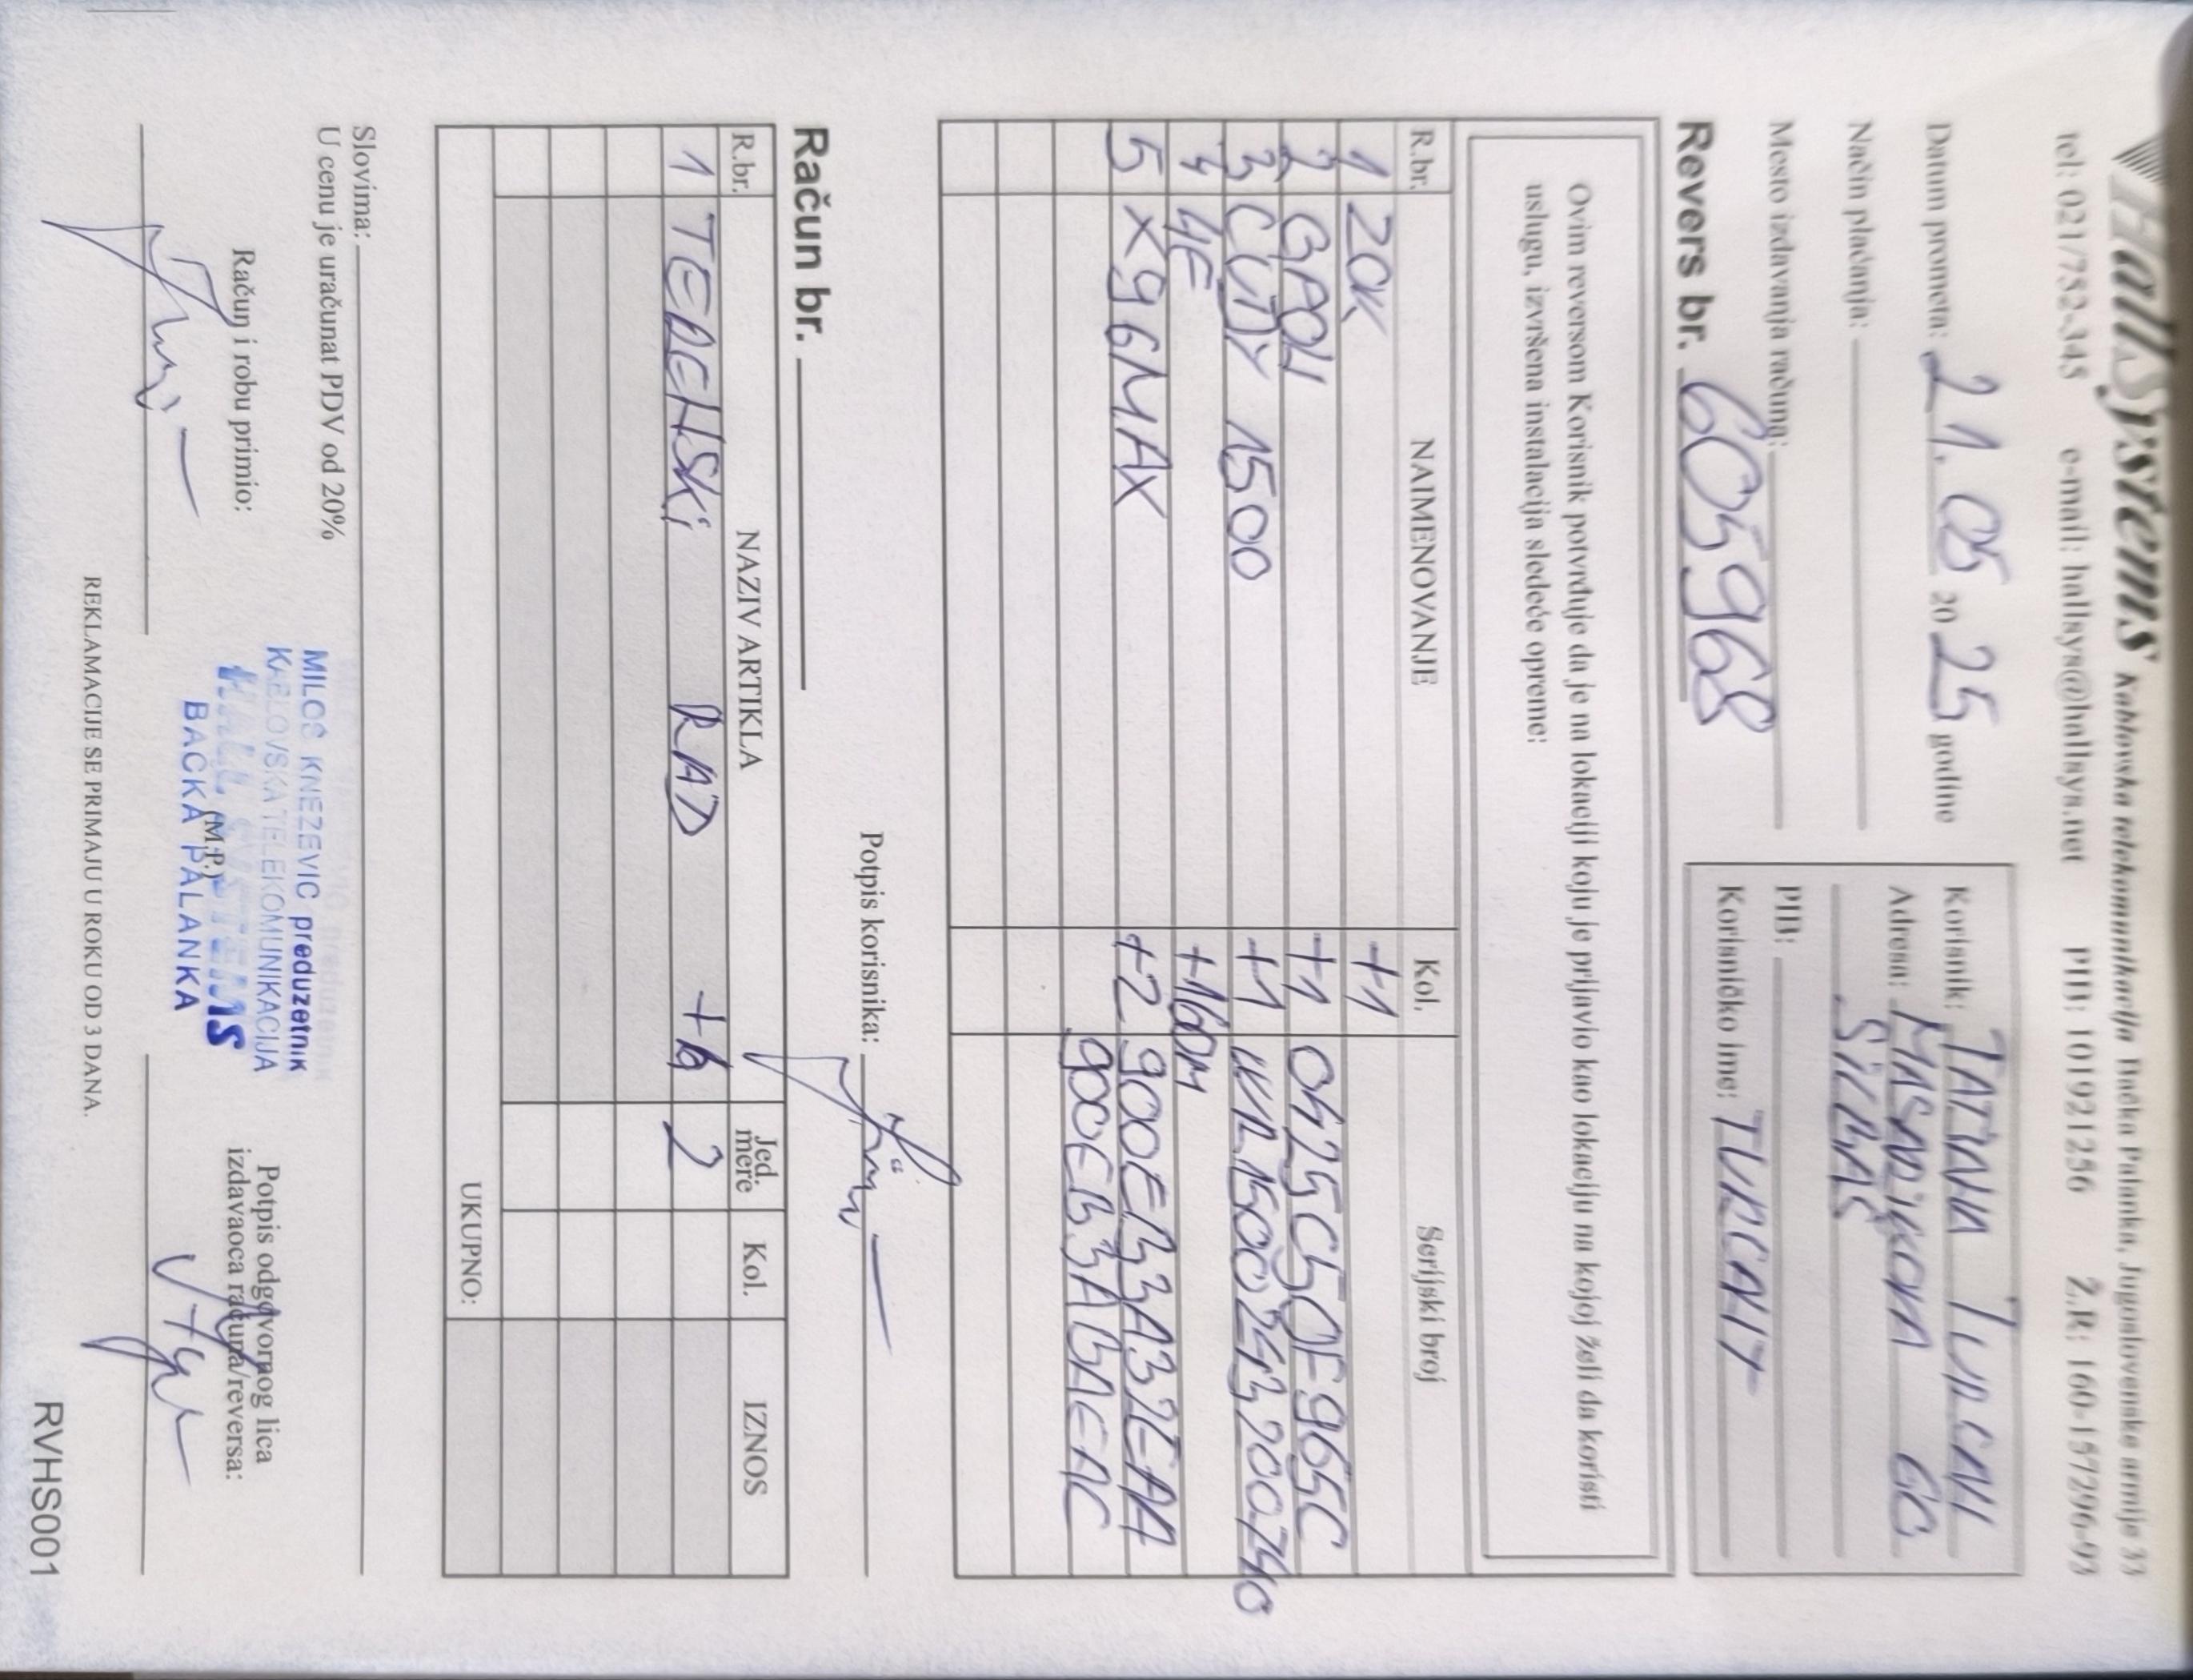 HallSystems Kablovska telekomunikacija Bačka Palanka, Jugoslovenske armije 33
tel: 021/752-345 e-mail: hallsys@hallsys.net PIB: 101921256 Ž.R: 160-157296-93
Datum prometa: 21. 05 20 25 godine
Način plaćanja:
Mesto izdavanja računa:
Revers br. 605968
Korisnik: TATJANA TURCANI
Adresa: MASARIKOVA 60
SILBAŠ
PIB:
Korisničko ime: TURCANIT
Ovim reversom Korisnik potvrđuje da je na lokaciji koju je prijavio kao lokaciju na kojoj želi da koristi
uslugu, izvršena instalacija sledeće opreme:
R.br. NAIMENOVANJE Kol. Serijski broj
1 ZOK +1
2 GPON +1 0425C5DF965C
3 CUDY 1500 +1 WR15002432007410
4 4F +160M
5 X96MAX +2 900EB3A32EAA
900EB3ABAEAC
Potpis korisnika:
Račun br.
R.br. NAZIV ARTIKLA Jed. mere Kol. IZNOS
1 TEHNSKi RAD +6 2
UKUPNO:
Slovima:
U cenu je uračunat PDV od 20%
Račun i robu primio:
MILOŠ KNEZEVIC preduzetnik
KABLOVSKA TELEKOMUNIKACIJA
HALL SYSTEMS
(M.P.)
BAČKA PALANKA
Potpis odgovornog lica
izdavaoca računa/reversa:
REKLAMACIJE SE PRIMAJU U ROKU OD 3 DANA.
RVHS001